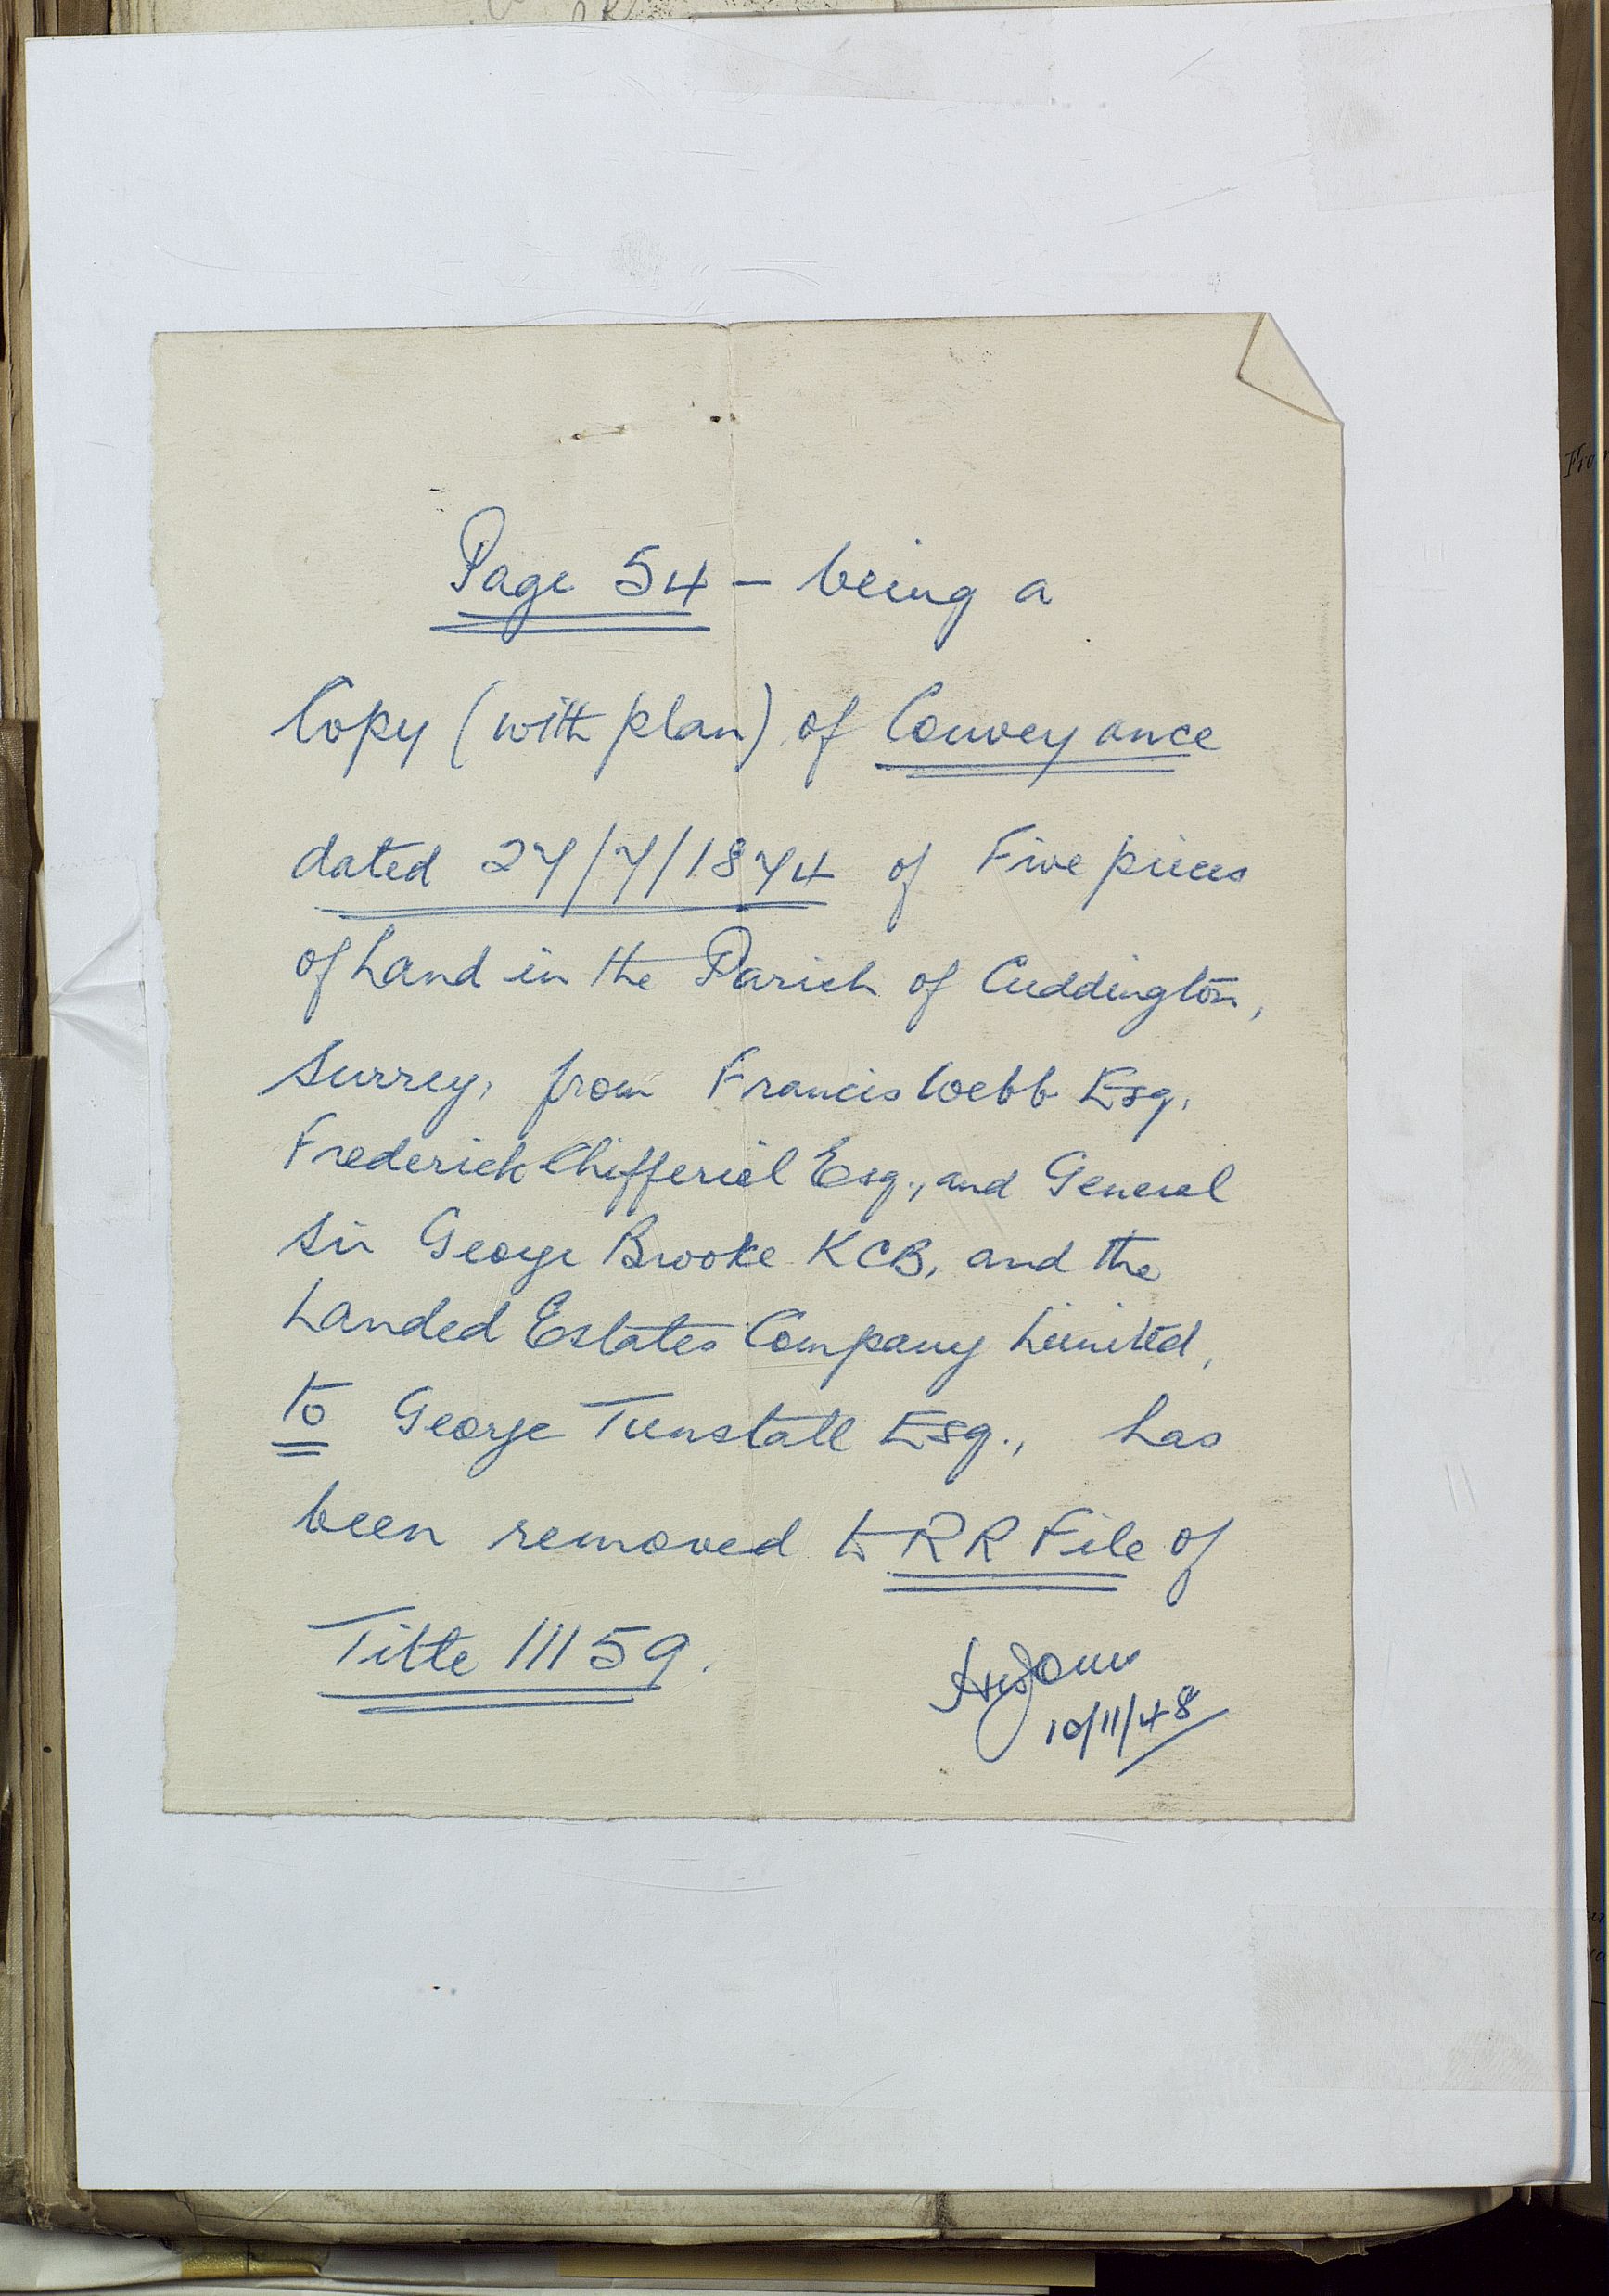 Page 54 – being a
Copy (with plan) of Conveyance
dated 27/7/1874 of Five pieces
of Land in the Parish of Cuddington,
Surrey, from Francis Webb Esq,
Frederick Chifferiel Esq., and General
Sir George Brooke KCB, and the
Landed Estates Company Limited,
to George Tunstall Esq., has
been removed to RR File of
Title 11159.
10/11/48